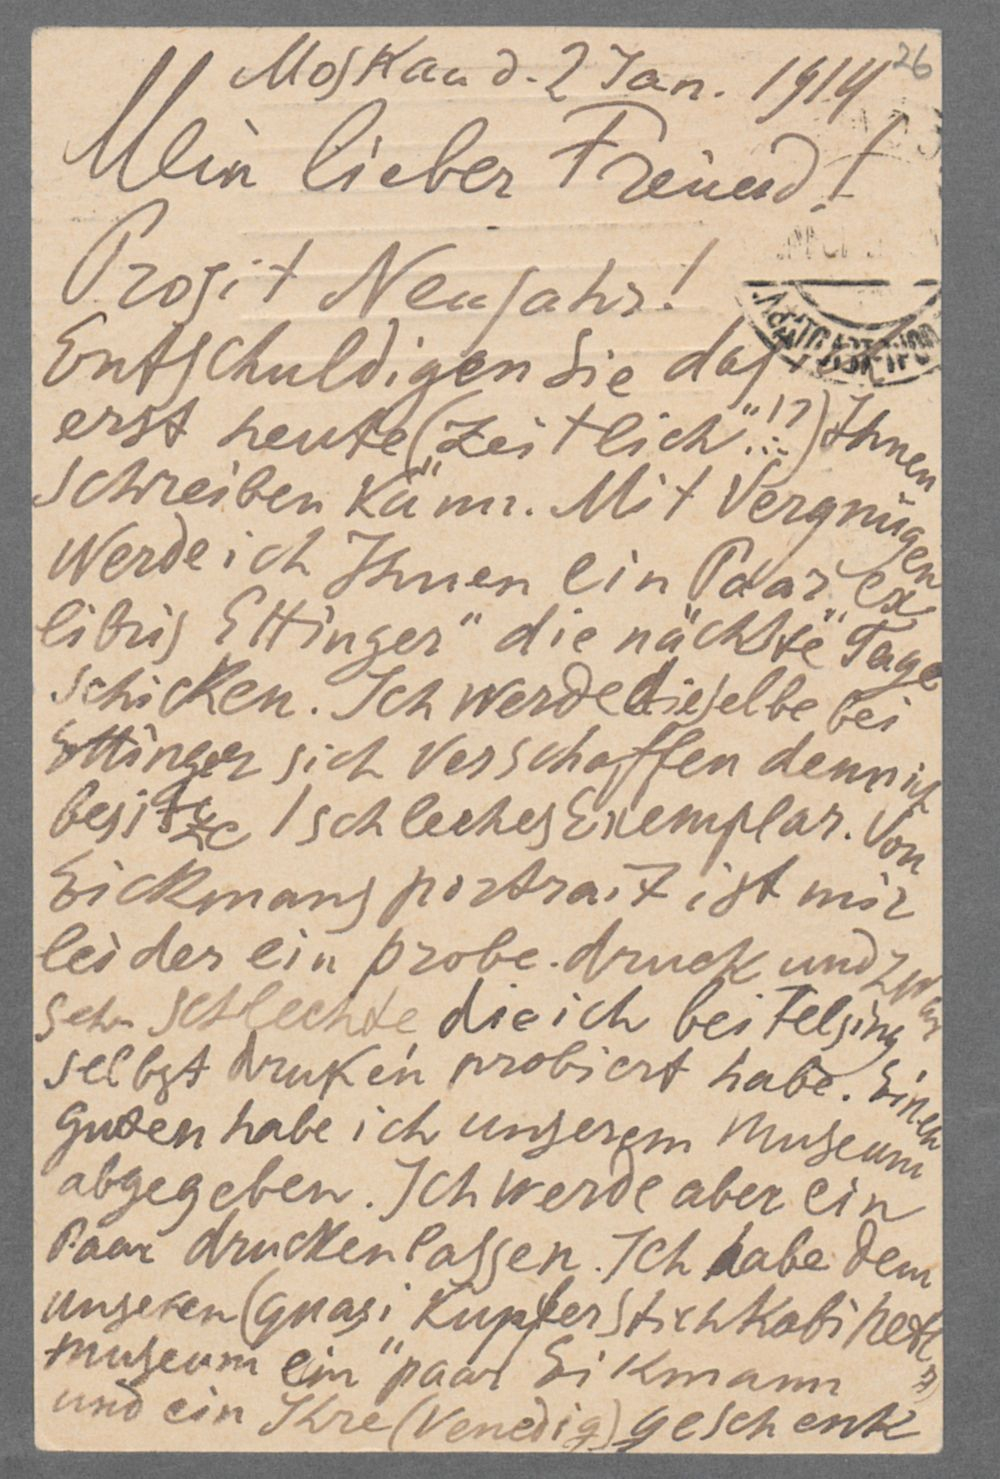 26
Moskau d. 2 Jan. 1914
Mein lieber Freund!
Prosit Neujahr!
Entschuldigen Sie das
erst heute („Zeitlich"!!?) Ihnen
schreiben kann. Mit Vergnügen
werde ich Ihnen ein Paar „ex
libris Ettinger" die nächste Tage
schicken. Ich werde dieselbe bei
Ettinger sich verschaffen denn ich
besitze 1 schleches Exemplar. Von
Eickmans portrait ist mir
leider ein probe-druck und zwar
sehr schlechte die ich bei Felsing
selbst druken probiert habe. Einen
guten habe ich unserem Museum
abgegeben. Ich werde aber ein
Paar drucken lassen. Ich habe dem
unseren (quasi Kupferstichkabinett)
Museum ein "paar Eikmann
und ein Ihre (Venedig) geschenk